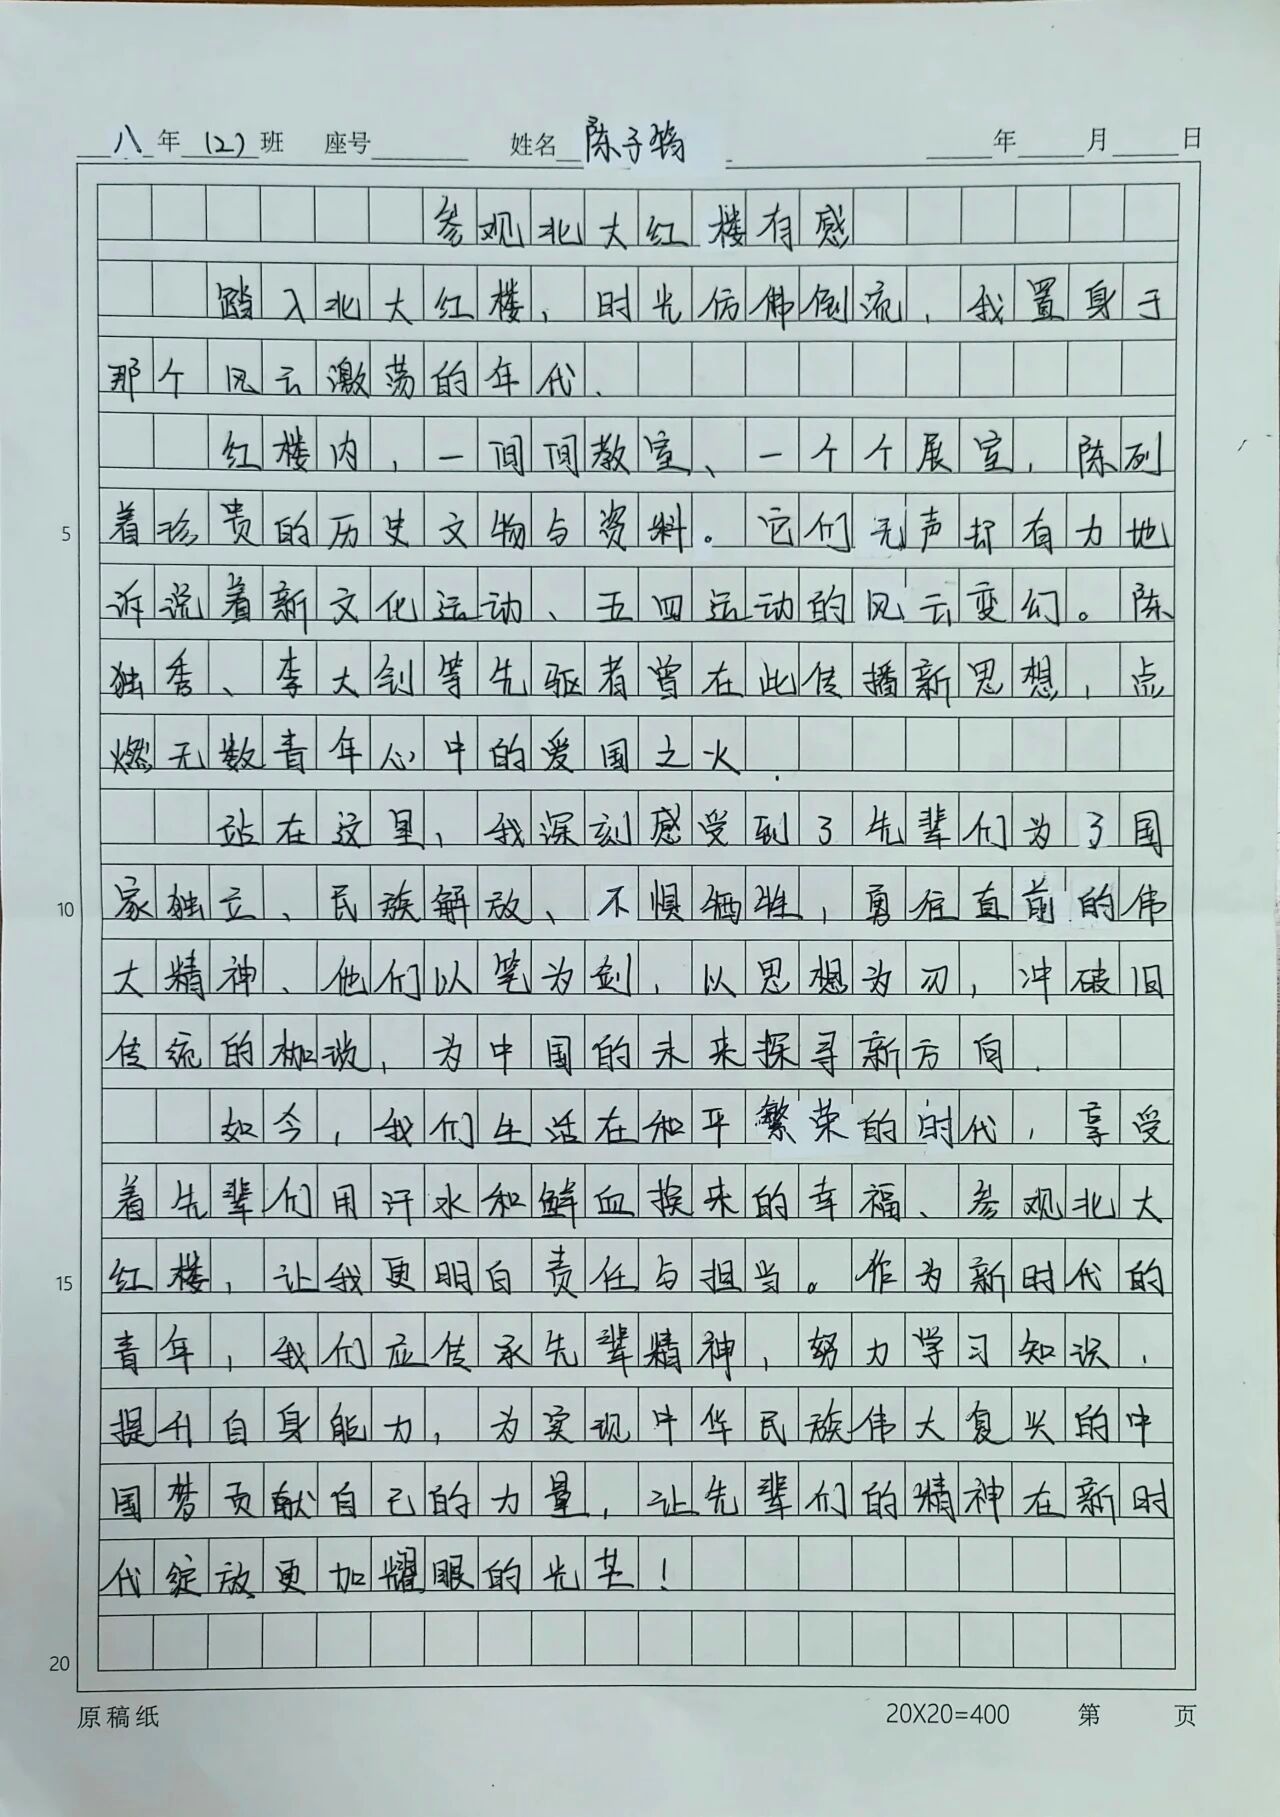 八年(2)班 座号 姓名 陈子 年 月 日
参观北大红楼有感
踏入北大红楼、时光仿佛倒流,我置身于
那个风云激荡的年代、
红楼内,一间间教室、一个个展室,陈列
5 着珍贵的历史文物与资料。它们无声却有力地
诉说着新文化运动、五四运动的风云变幻。陈
独秀、李大钊等先驱者曾在此传播新思想,点
燃无数青年心中的爱国之火.
站在这里,我深刻感受到了先辈们为了国
10 家独立、民族解放、不惧牺牲,勇往直前的伟
大精神、他们以笔为剑,以思想为刃,冲破旧
传统的枷锁,为中国的未来探寻新方向.
如今,我们生活在和平繁荣的时代,享受
着先辈们用汗水和鲜血换来的幸福、参观北大
15 红楼,让我更明白责任与担当。作为新时代的
青年,我们应传承先辈精神,努力学习知识,
提升自身能力,为实现中华民族伟大复兴的中
国梦贡献自己的力量,让先辈们的精神在新时
代绽放更加耀眼的光芒!
20
原稿纸 20X20=400 第 页